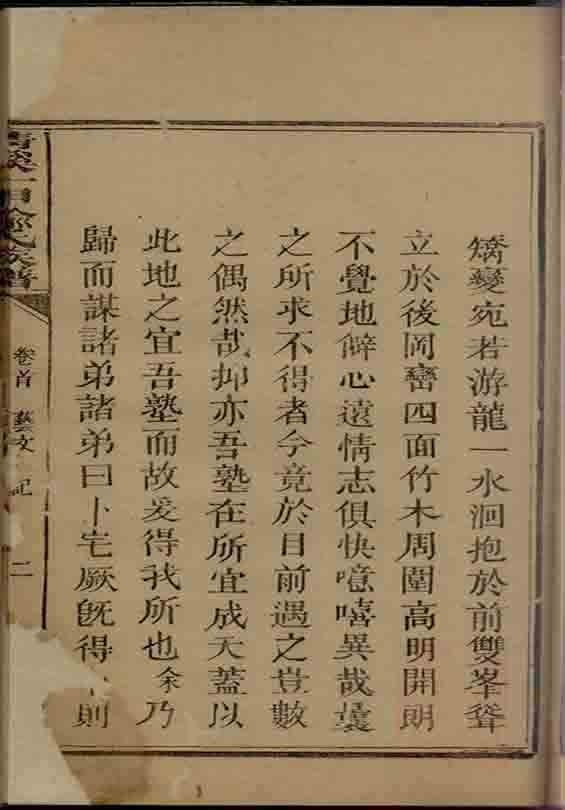 矯變宛若游龍一水洄抱於前雙峯聳
立於後岡巒四面竹木周圍高明開朗
不覺地僻心遠情志俱快噫嘻異哉曩
之所求不得者今竟於目前遇之豈數
之偶然哉抑亦吾塾在所宜成天蓋以
此地之宜吾塾而故爰得我所也余乃
歸而謀諸弟諸弟曰卜宅厥既得卜則
族譜
卷首
藝文
記
二